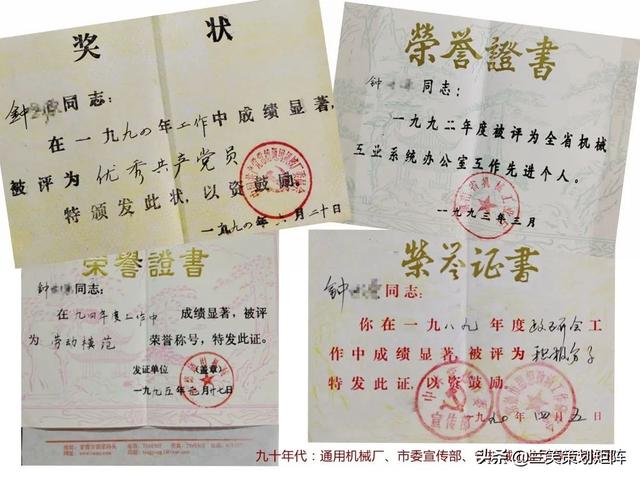 奖状
钟 同志：
在一九九〇年工作中成绩显著，
被评为优秀共产党员
特颁发此状，以资鼓励。
二十日
榮誉證書
钟 同志：
一九九二年度被评为全省机械
工业系统办公室工作先进个人。
一九九三年三月
荣誉證書
钟 同志：
在九四年度工作中 成绩显著，被评
为 劳动模范 荣誉称号，特发此证。
发证单位 （盖章）
一九九五年 月十七日
榮誉证書
钟 同志：
你在一九八九年度政研会工
作中成绩显著，被评为积极分子
特发此证，以资鼓励。
宣传部
一九九〇年四月五日
九十年代：通用机械厂、市委宣传部、
头条@三美策划矩阵